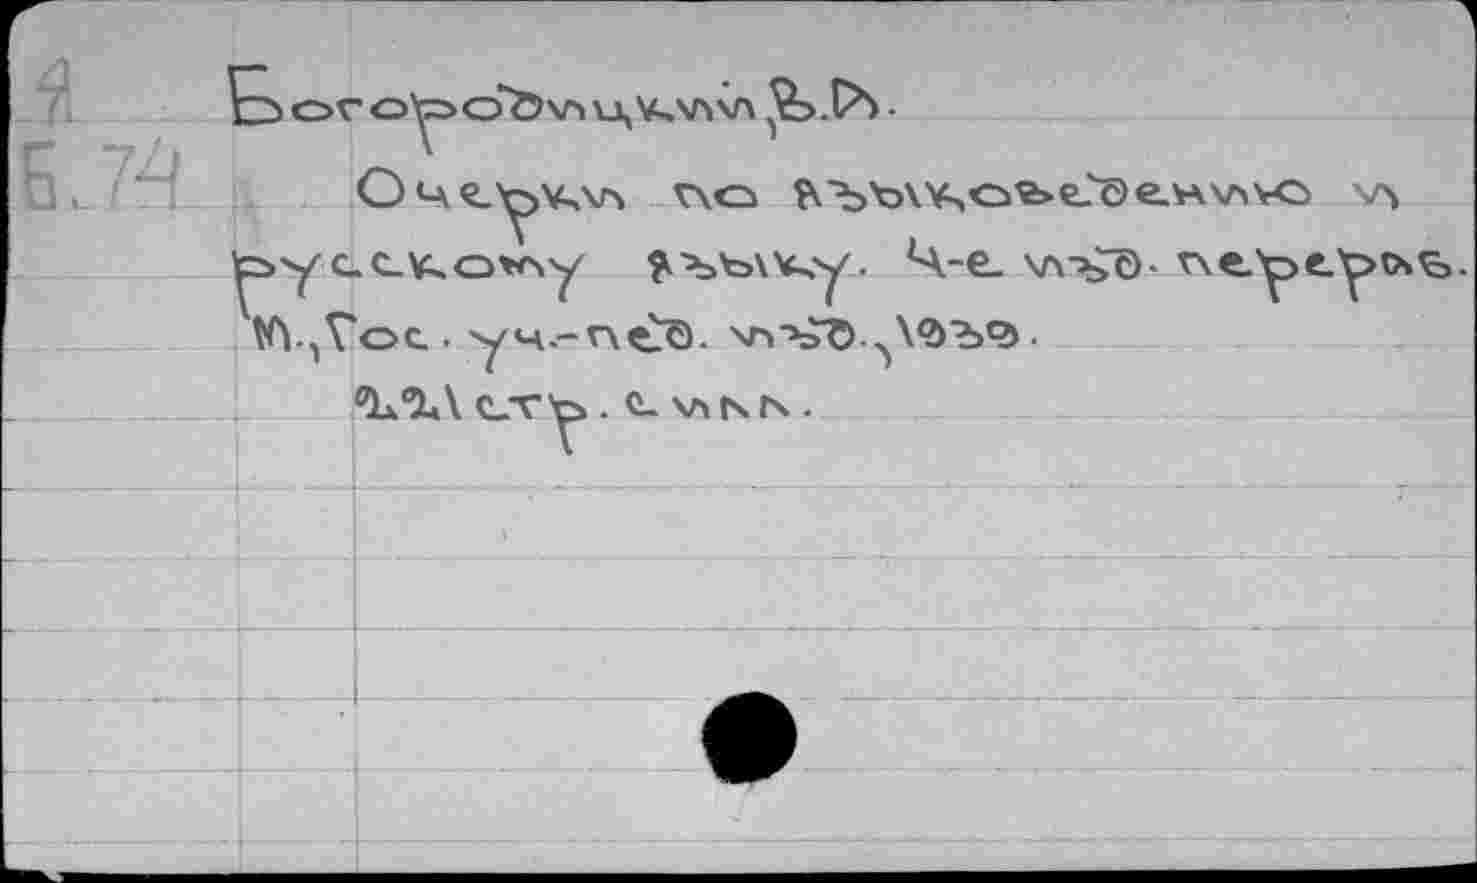 4
Богородицкий,В.А.
Б.74
Очерки по языковедению и
русскому языку. 4-е изд. перераб.
М.,Гос. уч.-пед. изд.,1939.
221 стр. с илл.